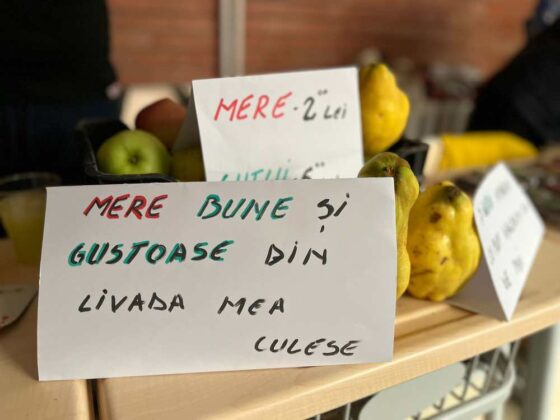 MERE - 2⁰⁰ Lei
GUTUI - 5⁰⁰
MERE BUNE ȘI
GUSTOASE DIN
LIVADA MEA
CULESE